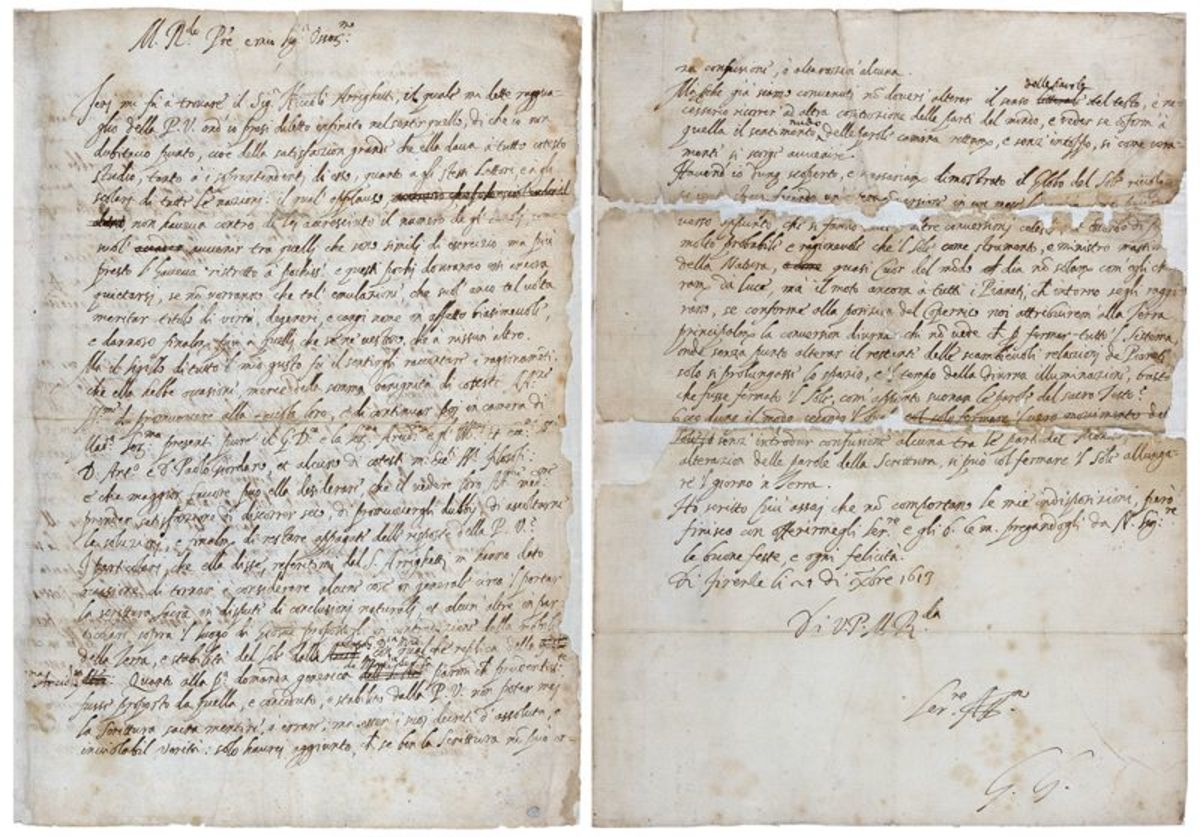 M. R.do P.re e mio Sig.r Oss.mo
Ieri mi fù à trovare il Sig. Niccolò Arrighetti, il quale mi dette raggua-
glio della P.V. ond'io presi diletto infinito nel sentir quello, di che io non
dubitavo punto, cioè della satisfazion grande che ella dava à tutto cotesto
Studio, tanto à i sopraintendenti di esso, quanto à gli stessi lettori, e agli
scolari di tutte le nazioni: il qual applauso
non haveva contro di lei accresciuto il numero de gli
avvenir tra quelli che sono simili di esercizio, ma più
presto l'haveva ristretto à pochissi. e questi pochi dovranno essi ancora
quietarsi, se non vorranno che tale emulazione, che suol anco tal volta
meritar titolo di virtù, degeneri, e cangi nome in affetto biasimevole,
e dannoso finalm. più à quelli che se ne vestono, che à nissun altro.
Ma il sigillo di tutto il mio gusto fù il sentirgli raccontar i ragionamti.
che ella hebbe occasione, mercè della somma benignità di coteste AA.
di promuovere alla tavola loro, e di continuar poi in camera di
Mad. Ser.ma presenti pure il G.D. e la Ser. Arcid.
D. Ant.o e D. Paolo Giordano, et alcuni di cotesti
e che maggior favore può ella desiderare, che il vedere loro AA. med.
prender satisfazione di discorrer seco, di promuovergli dubbii, di ascoltarne
le soluzioni, e finalm. di restare appagate delle risposte della P.V.
I particolari, che ella disse, referitimi dal S. Arrighetti, mi hanno dato
occasione di tornar à considerare alcune cose in generale circa 'l portar
la scrittura sacra in dispute di conclusioni naturali, et alcun'altre in par-
ticolare sopra 'l luogo di Giosuè propostogli in contradizione della mobilità
della Terra, e stabilità del Sole dalla Gran Duchessa Madre con qualche replica della
Ser.ma Arcid.
Quanto alla p.a domanda generica di Madama Ser.ma parmi che prudentiss.
fusse proposto da quella, e conceduto, e stabilito dalla P.V. non poter mai
la Scrittura sacra mentire, ò errare, ma essere i suoi decreti d'assoluta, e
inviolabil verità: solo haurei aggiunto, che se ben la Scrittura non può er-
na confusione, ò alterazion' alcuna.
delle parole
Ma se che già siamo convenuti nō doversi alterar il senso del testo, è ne-
cessario ricorrer ad altra costituzione delle parti del mondo, e veder se conform' à
quella il sentimento nudo delle parole camina rettam. e senza intoppo, si come vera-
mente si scorge avvenire.
Havendo io dunq scoperto, e necessariam. dimostrato il Globo del Sole rivolge-
conversione in un mese
verso appunto che si fanno altre conversioni
molto probabile e ragionevole che 'l Sole come strumento, e ministro massimo
della Natura, quasi Cuor del mōdo dia nō solam. com'egli chia-
ram. dà luce, mà il moto ancora à tutti i Pianeti, che intorno segli raggi-
rano, se conforme alla posizion del Copernico noi attribuirem alla Terra
principalm. la conversion diurna chi nō vede che p fermar tutto 'l sistema,
onde senza punto alterar il restante delle scambievoli relazioni de Pianeti
solo si prolungasse lo spazio, e 'l tempo della diurna illuminazione, bastò
che fusse fermato il Sole, com'appunto suonan le parole del sacro Testo?
Ecco dunq il modo secondo il quale
senza introdur confusione alcuna tra le parti del Mondo,
alterazion delle parole della Scrittura, si può col fermare 'l Sole allunga-
re 'l giorno in Terra.
Ho scritto più assai che nō comportano le mie indisposizioni, però
finisco con offerirmegli ser.re e gli b. le m. pregandogli da N. Sig.re
le buone feste e ogni felicità.
Di Firenze li 21 di Xbre 1613
Di V.P.M.R.da
Ser.re Aff.mo
G. G.